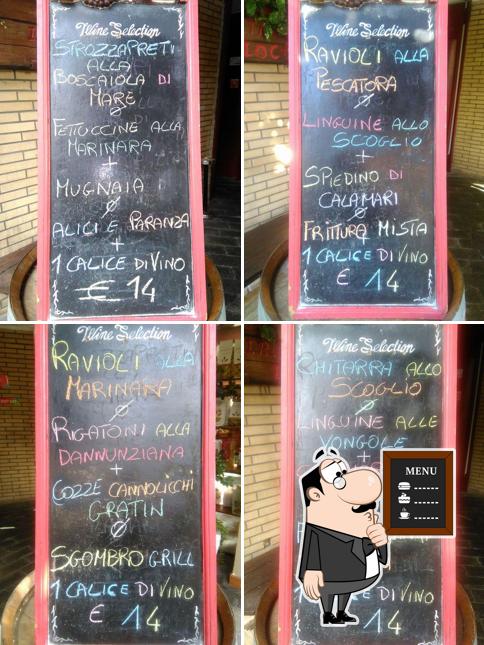 Wine Selection
STROZZAPRETI
ALLA
BOSCAIOLA DI
MARE
Ø
FETTUCCINE ALLA
MARINARA
+
MUGNAIA
Ø
ALICI E PARANZA
+
1 CALICE DI VINO
€ 14
Wine Selection
RAVIOLI ALLA
PESCATORA
Ø
LINGUINE ALLO
SCOGLIO
+
SPIEDINO DI
CALAMARI
Ø
FRITTURA MISTA
1 CALICE DI VINO
€ 14
Wine Selection
RAVIOLI ALLA
MARINARA
Ø
RIGATONI ALLA
DANNUNZIANA
+
COZZE CANNOLICCHI
GRATIN
Ø
SGOMBRO GRILL
1 CALICE DI VINO
€ 14
Wine Selection
CHITARRA ALLO
SCOGLIO
Ø
LINGUINE ALLE
VONGOLE
+
MENU
DI VINO
14